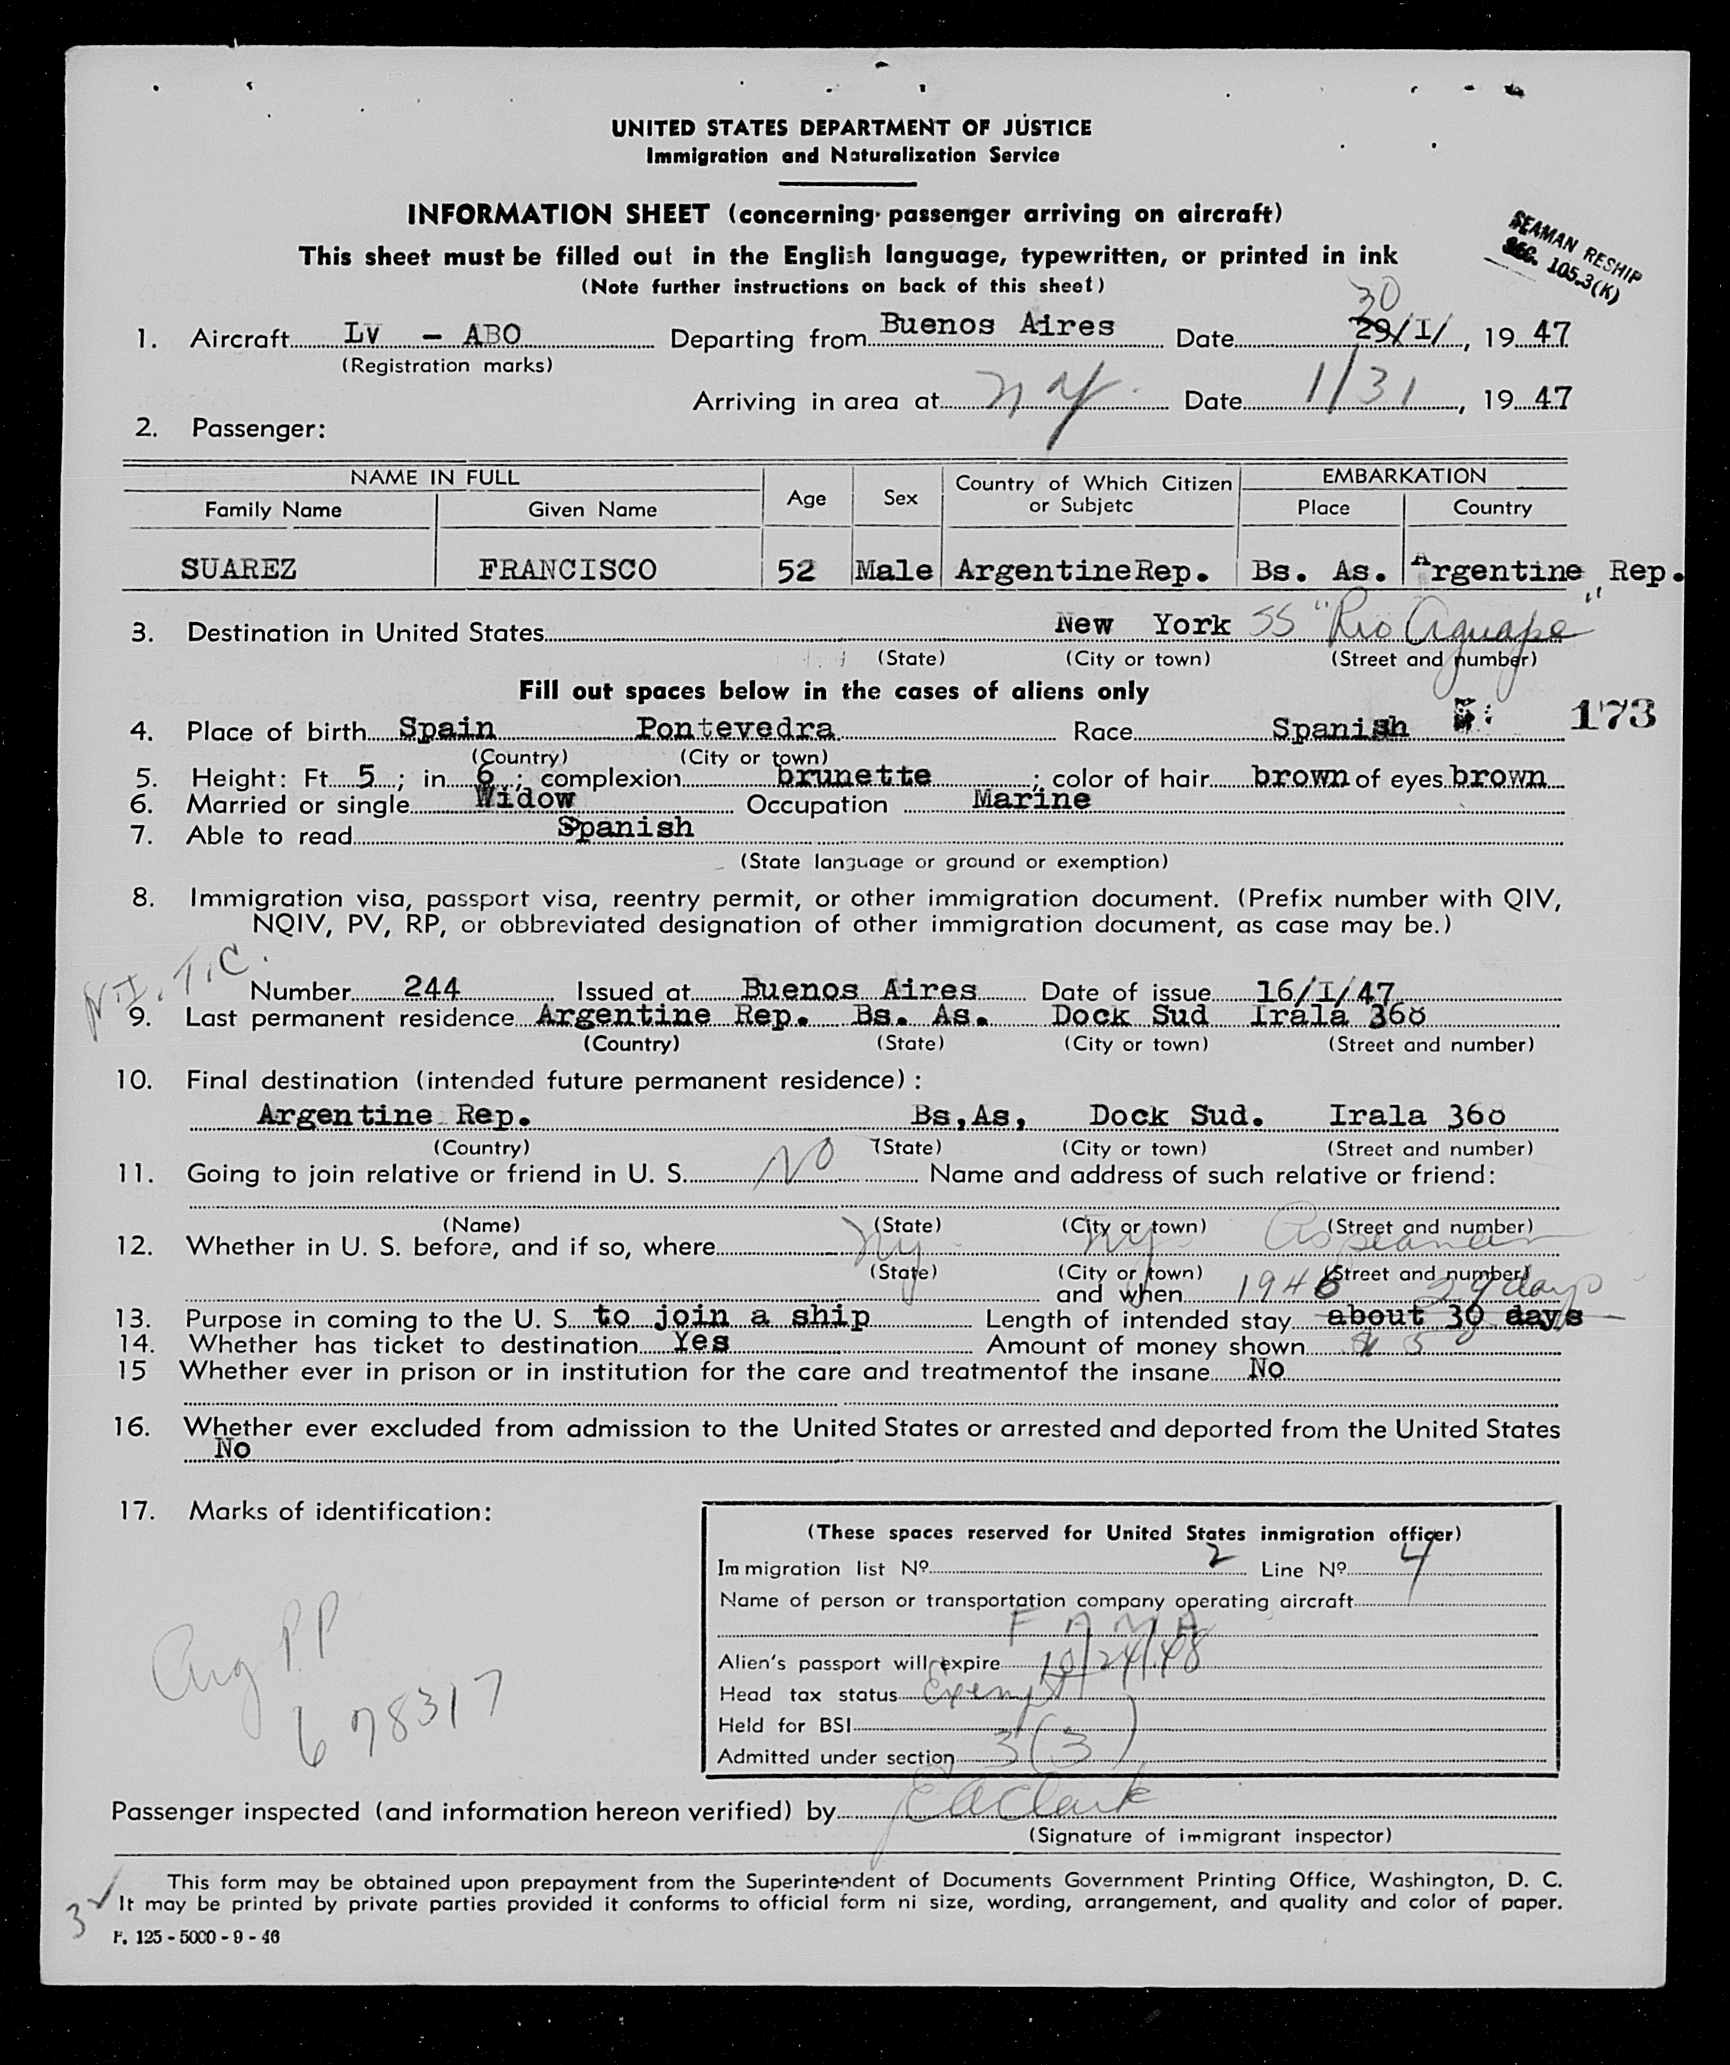 UNITED STATES DEPARTMENT OF JUSTICE
Immigration and Naturalization Service
INFORMATION SHEET (concerning passenger arriving on aircraft)
This sheet must be filled out in the English language, typewritten, or printed in ink
(Note further instructions on back of this sheet)
SEAMAN RESHIP
SEC. 105.3(K)
30
1. Aircraft LV - ABO Departing from Buenos Aires Date 29/I/, 19 47
(Registration marks)
Arriving in area at NY. Date 1/31, 19 47
2. Passenger:
NAME IN FULL Age Sex Country of Which Citizen or Subjetc EMBARKATION
Family Name Given Name Place Country
SUAREZ FRANCISCO 52 Male ArgentineRep. Bs. As. Argentine Rep.
3. Destination in United States New York SS "Rio Aguape"
(State) (City or town) (Street and number)
Fill out spaces below in the cases of aliens only
173
4. Place of birth Spain Pontevedra Race Spanish
(Country) (City or town)
5. Height: Ft. 5; in 6; complexion brunette; color of hair brown of eyes brown
6. Married or single Widow Occupation Marine
7. Able to read Spanish
(State language or ground or exemption)
8. Immigration visa, passport visa, reentry permit, or other immigration document. (Prefix number with QIV,
NQIV, PV, RP, or obbreviated designation of other immigration document, as case may be.)
N.I.T.C.
Number 244 Issued at Buenos Aires Date of issue 16/I/47
9. Last permanent residence Argentine Rep. Bs. As. Dock Sud Irala 368
(Country) (State) (City or town) (Street and number)
10. Final destination (intended future permanent residence):
Argentine Rep. Bs,As, Dock Sud. Irala 368
(Country) (State) (City or town) (Street and number)
11. Going to join relative or friend in U. S. NO Name and address of such relative or friend:
(Name) (State) (City or town) (Street and number)
12. Whether in U. S. before, and if so, where NY NY As seaman
(State) (City or town) (Street and number)
and when 1946 29 days
13. Purpose in coming to the U. S. to join a ship Length of intended stay about 30 days
14. Whether has ticket to destination Yes Amount of money shown $ 50
15 Whether ever in prison or in institution for the care and treatmentof the insane No
16. Whether ever excluded from admission to the United States or arrested and deported from the United States
No
17. Marks of identification:
Arg P.P
678317
(These spaces reserved for United States inmigration officer)
Immigration list Nº 2 Line Nº 4
Name of person or transportation company operating aircraft
F A M A
Alien's passport will expire 10/24/48
Head tax status Exempt
Held for BSI
Admitted under section 3(3)
Passenger inspected (and information hereon verified) by E A Clark
(Signature of immigrant inspector)
This form may be obtained upon prepayment from the Superintendent of Documents Government Printing Office, Washington, D. C.
It may be printed by private parties provided it conforms to official form ni size, wording, arrangement, and quality and color of paper.
3
F. 125 - 5000 - 9 - 46